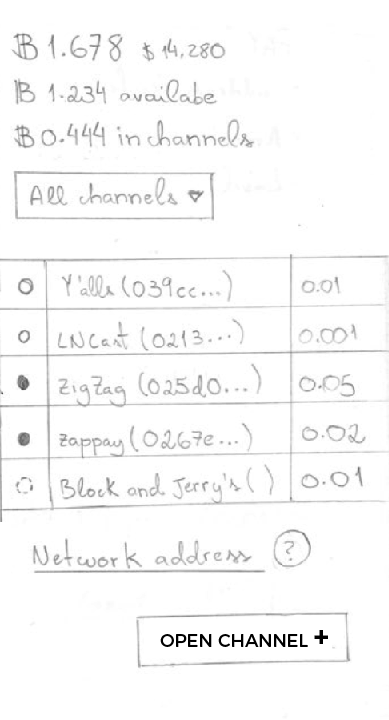 ₿ 1.678 $ 14.280
₿ 1.234 availabe
₿ 0.444 in channels
All channels ▾
Y'alls (039cc...) 0.01
LNCast (0213...) 0.001
ZigZag (025d0...) 0.05
Zappay (0267e...) 0.02
Block and Jerry's () 0.01
Network address ?
OPEN CHANNEL +